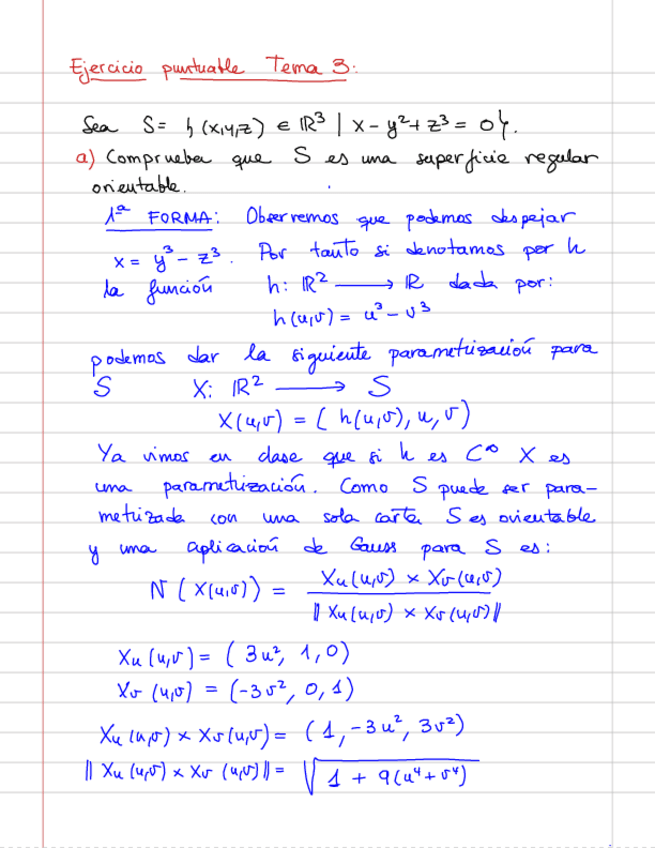 Ejercicio puntuable Tema 3:
Sea S= {(x,y,z) ∈ ℝ³ | x - y² + z³ = 0}.
a) Comprueba que S es una superficie regular
orientable.
1ª FORMA: Observemos que podemos despejar
x = y³ - z³. Por tanto si denotamos por h
la función h: ℝ² ⟶ ℝ dada por:
h(u,v) = u³ - v³
podemos dar la siguiente parametrización para
S X: ℝ² ⟶ S
X(u,v) = (h(u,v), u, v)
Ya vimos en clase que si h es C^∞ X es
una parametrización. Como S puede ser para-
metrizada con una sola carta S es orientable
y una aplicación de Gauss para S es:
N(X(u,v)) = Xu(u,v) × Xv(u,v)
‖Xu(u,v) × Xv(u,v)‖
Xu(u,v) = (3u², 1, 0)
Xv(u,v) = (-3v², 0, 1)
Xu(u,v) × Xv(u,v) = (1, -3u², 3v²)
‖Xu(u,v) × Xv(u,v)‖ = √1 + 9(u⁴ + v⁴)